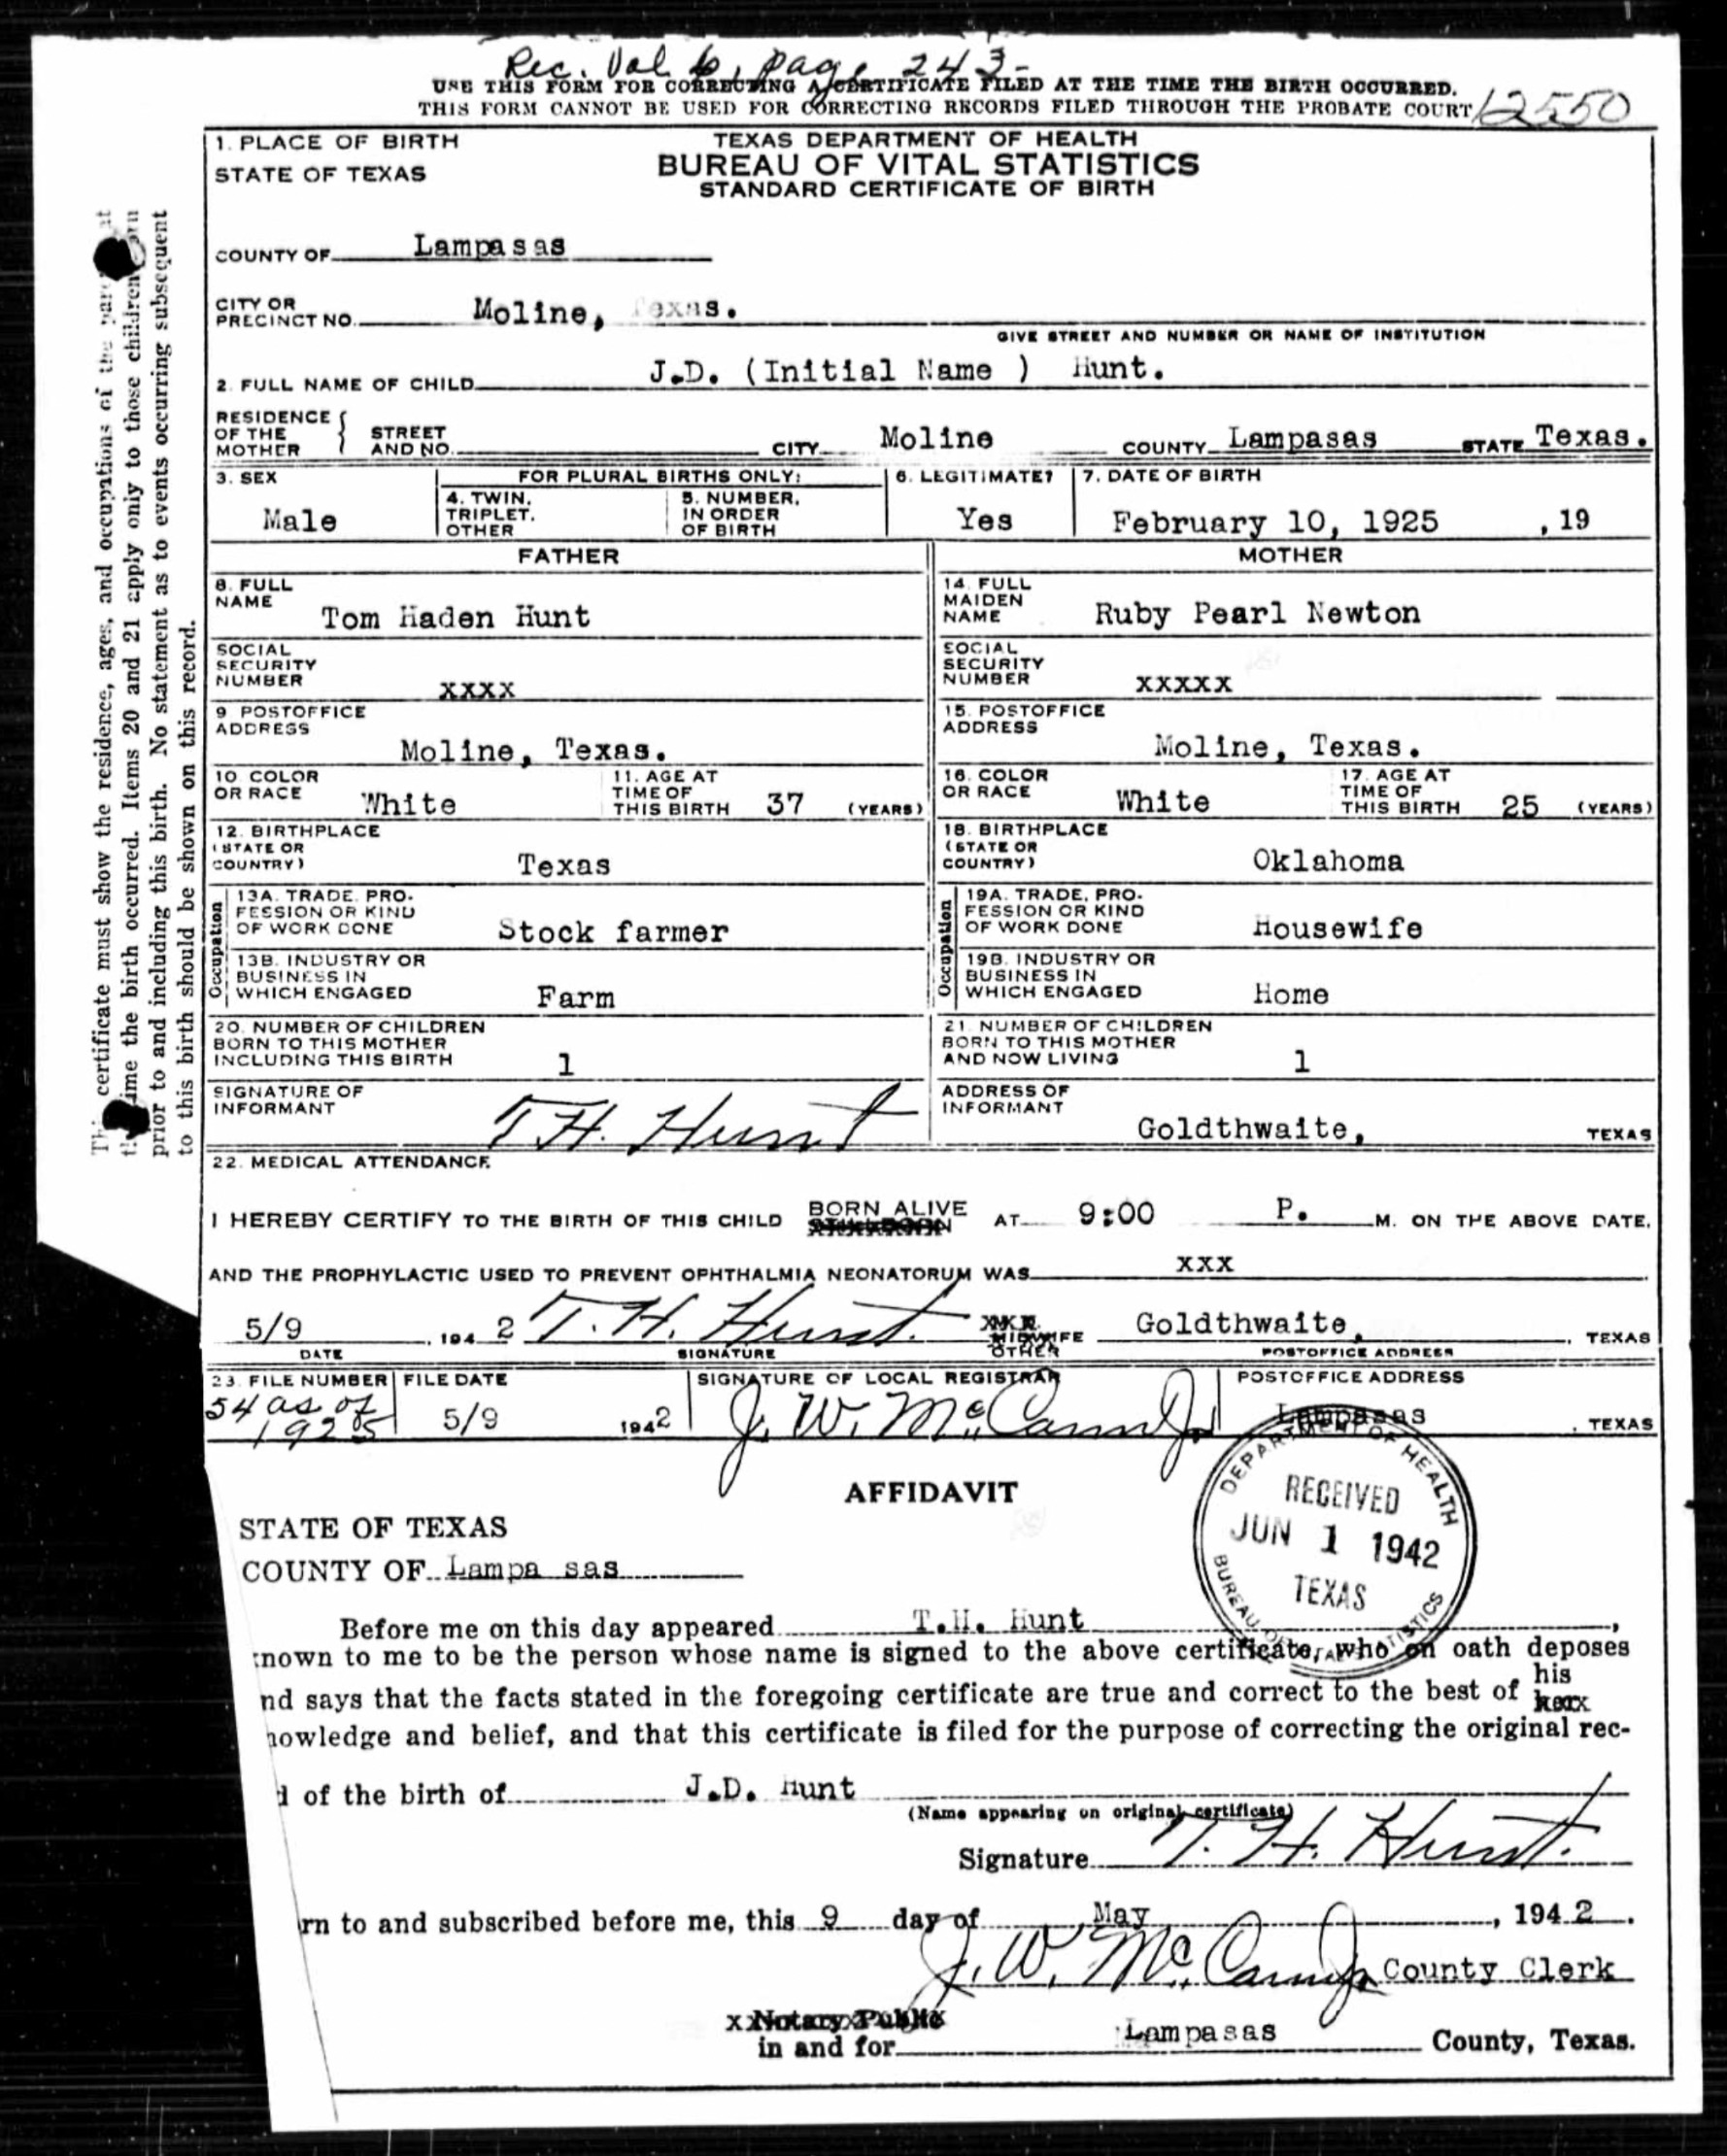 Rec. Vol 6, page 243-
USE THIS FORM FOR CORRECTING A CERTIFICATE FILED AT THE TIME THE BIRTH OCCURRED.
THIS FORM CANNOT BE USED FOR CORRECTING RECORDS FILED THROUGH THE PROBATE COURT
12550
1. PLACE OF BIRTH
STATE OF TEXAS
TEXAS DEPARTMENT OF HEALTH
BUREAU OF VITAL STATISTICS
STANDARD CERTIFICATE OF BIRTH
COUNTY OF Lampasas
CITY OR
PRECINCT NO. Moline, Texas.
GIVE STREET AND NUMBER OR NAME OF INSTITUTION
2. FULL NAME OF CHILD J.D. (Initial Name ) Hunt.
RESIDENCE
OF THE
MOTHER
STREET
AND NO. CITY Moline COUNTY Lampasas STATE Texas.
3. SEX
Male
FOR PLURAL BIRTHS ONLY:
4. TWIN,
TRIPLET,
OTHER
5. NUMBER,
IN ORDER
OF BIRTH
6. LEGITIMATE?
Yes
7. DATE OF BIRTH
February 10, 1925 , 19
FATHER
8. FULL
NAME Tom Haden Hunt
SOCIAL
SECURITY
NUMBER xxxx
9 POSTOFFICE
ADDRESS
Moline, Texas.
10. COLOR
OR RACE White
11. AGE AT
TIME OF
THIS BIRTH 37 (YEARS)
12. BIRTHPLACE
(STATE OR
COUNTRY) Texas
Occupation
13A. TRADE, PRO-
FESSION OR KIND
OF WORK DONE Stock farmer
13B. INDUSTRY OR
BUSINESS IN
WHICH ENGAGED Farm
MOTHER
14. FULL
MAIDEN
NAME Ruby Pearl Newton
SOCIAL
SECURITY
NUMBER xxxxx
15. POSTOFFICE
ADDRESS
Moline, Texas.
16. COLOR
OR RACE White
17. AGE AT
TIME OF
THIS BIRTH 25 (YEARS)
18. BIRTHPLACE
(STATE OR
COUNTRY) Oklahoma
Occupation
19A. TRADE, PRO-
FESSION OR KIND
OF WORK DONE Housewife
19B. INDUSTRY OR
BUSINESS IN
WHICH ENGAGED Home
20. NUMBER OF CHILDREN
BORN TO THIS MOTHER
INCLUDING THIS BIRTH 1
21. NUMBER OF CHILDREN
BORN TO THIS MOTHER
AND NOW LIVING 1
SIGNATURE OF
INFORMANT T.H. Hunt
ADDRESS OF
INFORMANT
Goldthwaite, TEXAS
22. MEDICAL ATTENDANCE
I HEREBY CERTIFY TO THE BIRTH OF THIS CHILD BORN ALIVE AT 9:00 P. M. ON THE ABOVE DATE,
AND THE PROPHYLACTIC USED TO PREVENT OPHTHALMIA NEONATORUM WAS xxx
5/9 , 194 2 T. H. Hunt. MIDWIFE Goldthwaite, , TEXAS
DATE SIGNATURE OTHER POSTOFFICE ADDRESS
23. FILE NUMBER
54 as of
1925
FILE DATE
5/9 1942
SIGNATURE OF LOCAL REGISTRAR
J. W. McCann Jr.
POSTOFFICE ADDRESS
Lampasas , TEXAS
DEPARTMENT OF HEALTH
RECEIVED
JUN 1 1942
TEXAS
BUREAU OF VITAL STATISTICS
AFFIDAVIT
STATE OF TEXAS
COUNTY OF Lampa sas
Before me on this day appeared T.H. Hunt ,
nown to me to be the person whose name is signed to the above certificate, who on oath deposes
nd says that the facts stated in the foregoing certificate are true and correct to the best of his her
nowledge and belief, and that this certificate is filed for the purpose of correcting the original rec-
d of the birth of J.D. Hunt
(Name appearing on original certificate)
Signature T. H. Hunt.
rn to and subscribed before me, this 9 day of May , 194 2 .
J. W. McCann Jr. County Clerk
Notary Public
in and for Lampasas County, Texas.
certificate must show the residence, ages, and occupations of the
time the birth occurred. Items 20 and 21 apply only to those children
prior to and including this birth. No statement as to events occurring subsequent
to this birth should be shown on this record.